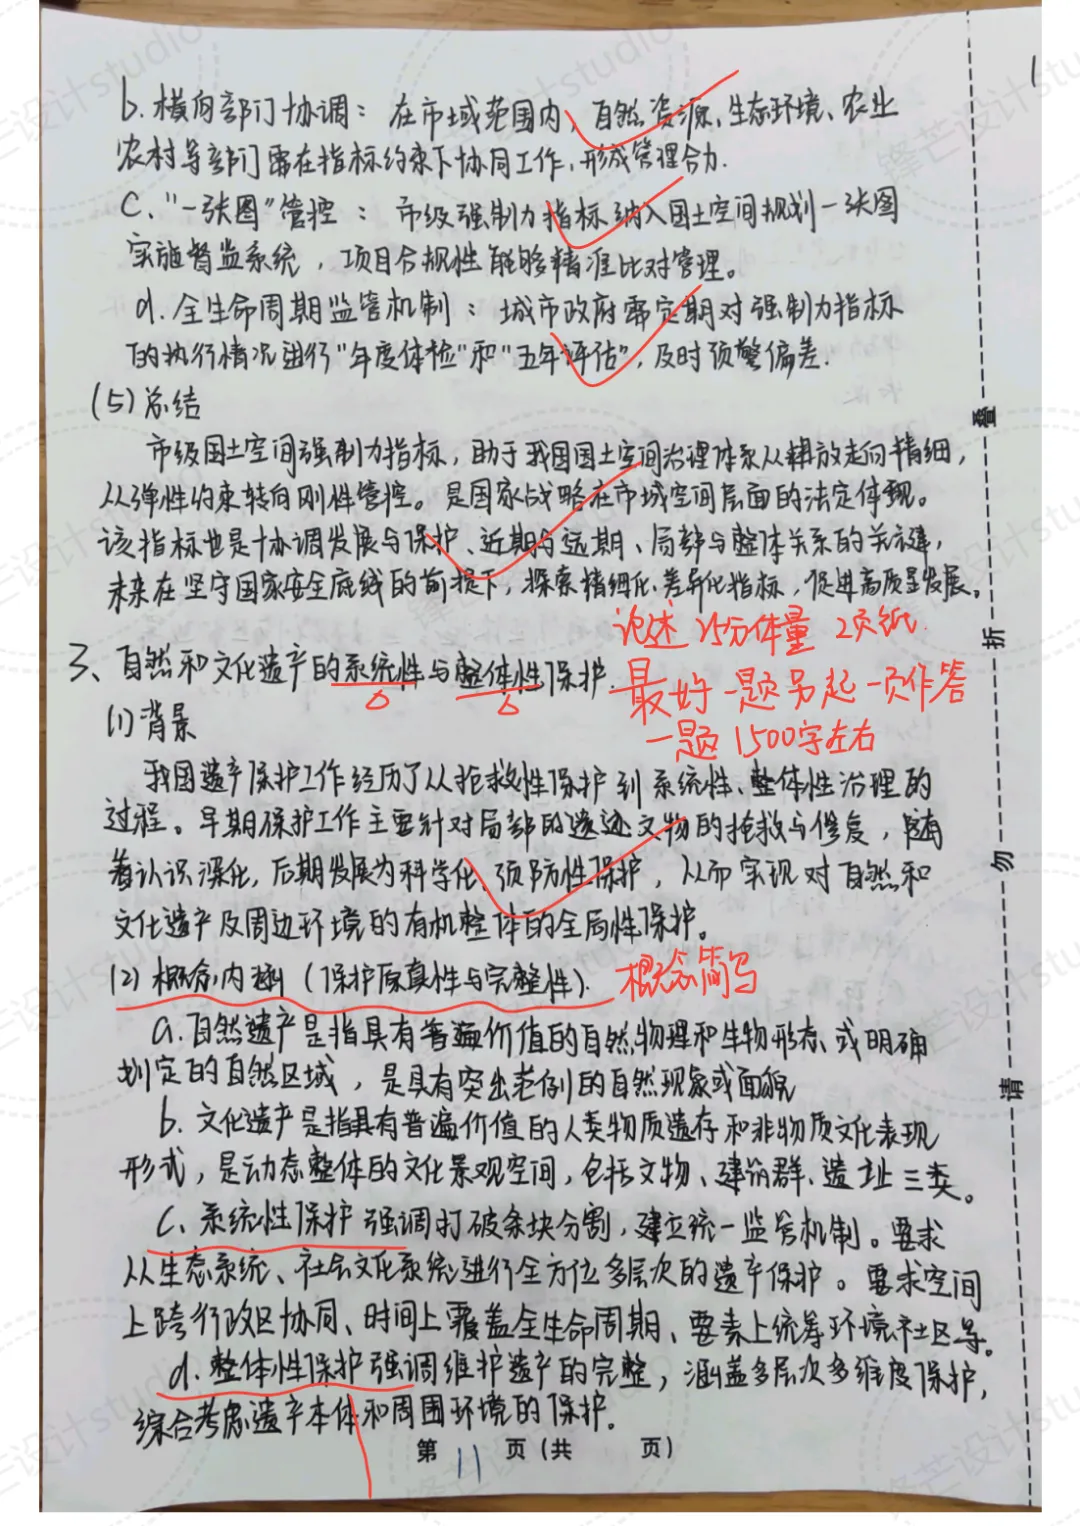 b. 横向部门协调：在市域范围内，自然资源、生态环境、农业
农村等部门需在指标约束下协同工作，形成管理合力.
C. "一张图"管控：市级强制力指标纳入国土空间规划一张图
实施督监系统，项目合规性能够精准比对管理。
d. 全生命周期监管机制：城市政府需定期对强制力指标
的执行情况进行"年度体检"和"五年评估"，及时预警偏差.
(5) 总结
市级国土空间强制力指标，助于我国国土空间治理体系从释放走向精细，
从弹性约束转向刚性管控。是国家战略在市域空间层面的法定体现。
该指标也是协调发展与保护、近期与远期、局部与整体关系的关键，
未来在坚守国家安全底线的前提下，探索精细化、差异化指标，促进高质量发展。
论述 25分体量 2页纸.
3、自然和文化遗产的系统性与整体性保护.
最好一题另起一页作答
一题1500字左右
(1) 背景
我国遗产保护工作经历了从抢救性保护到系统性、整体性治理的
过程。早期保护工作主要针对局部的遗迹文物的抢救与修复，随
着认识深化，后期发展为科学化、预防性保护，从而实现对自然和
文化遗产及周边环境的有机整体的全局性保护。
(2) 概念内涵（保护原真性与完整性）.
概念简写
a. 自然遗产是指具有普遍价值的自然物理和生物形态或明确
划定的自然区域，是具有突出范例的自然现象或面貌
b. 文化遗产是指具有普遍价值的人类物质遗存和非物质文化表现
形式，是动态整体的文化景观空间，包括文物、建筑群、遗址三类。
C. 系统性保护强调打破条块分割，建立统一监管机制。要求
从生态系统、社会文化系统进行全方位多层次的遗产保护。要求空间
上跨行政区协同、时间上覆盖全生命周期、要素上统筹环境社区等。
d. 整体性保护强调维护遗产的完整，涵盖多层次多维度保护，
综合考虑遗产本体和周围环境的保护.
第 11 页（共 页）
叠
折
勿
请
锋芒设计studio